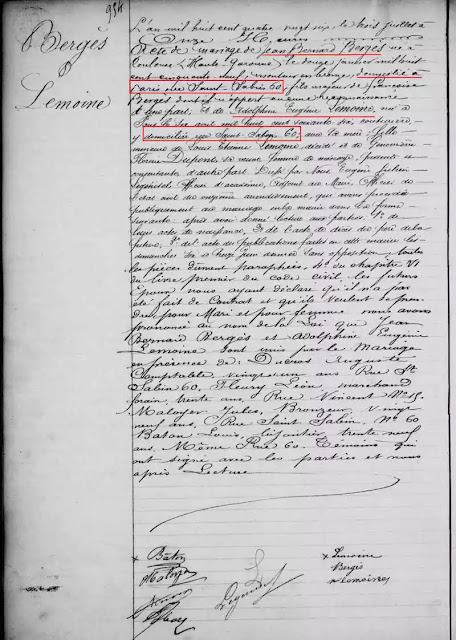 934
Bergès
Lemoine
L'an mil huit cent quatre vingt six le trois juillet à
onze
Acte de mariage de Jean Bernard Bergès né à
Toulouse (Haute Garonne) le douze janvier mil huit
cent cinquante neuf, monteur en bronze, domicilié à
Paris rue Saint Sabin 60, fils majeur de Françoise
Bergès dont
d'une part, Et de Adolphine Eugénie Lemoine, née à
Paris le dix août mil huit cent soixante six, couturière,
domiciliée rue Saint Sabin 60, avec sa mère, fille
mineure de Louis Etienne Lemoine, décédé et de Geneviève
Dupont, sa veuve femme de ménage, présente et
consentante d'autre part Dressé par Nous Eugène Julien
Legendre Officier d'académie, adjoint au Maire, Officier de
Etat civil du onzième arrondissement, qui avons procédé
publiquement au mariage en la mairie dans la forme
suivante: après avoir donné lecture aux parties 1° de
leurs actes de naissance, 2° de l'acte de décès du père de la
future, 3° des actes de publications faites en cette mairie les
dimanches six et treize juin dernier sans opposition toutes
les pièces dûment paraphées, 4° du chapitre VI
du livre premier du code civil, les futurs
époux nous ayant déclaré qu'il n'a pas
été fait de Contrat et qu'ils veulent se pren
dre pour Mari et pour femme nous avons
prononcé au nom de la Loi que Jean
Bernard Bergès et Adolphine Eugénie
Lemoine sont unis par le Mariage
en présence de: Ducros Auguste
Comptable vingt un ans Rue St
Sabin 60, Fleury Léon, marchand
forain, trente ans, Rue Vincent N° 15.
Maloyer Jules, Bronzeur, vingt
neuf ans, Rue Saint Sabin, N° 60
Baton Louis, bijoutier, trente neuf
ans, Même Rue 60. Témoins qui
ont signé avec les parties et nous
après Lecture
x Baton
Maloyer
Legendre
x Lemoine
Bergès
x Lemoine